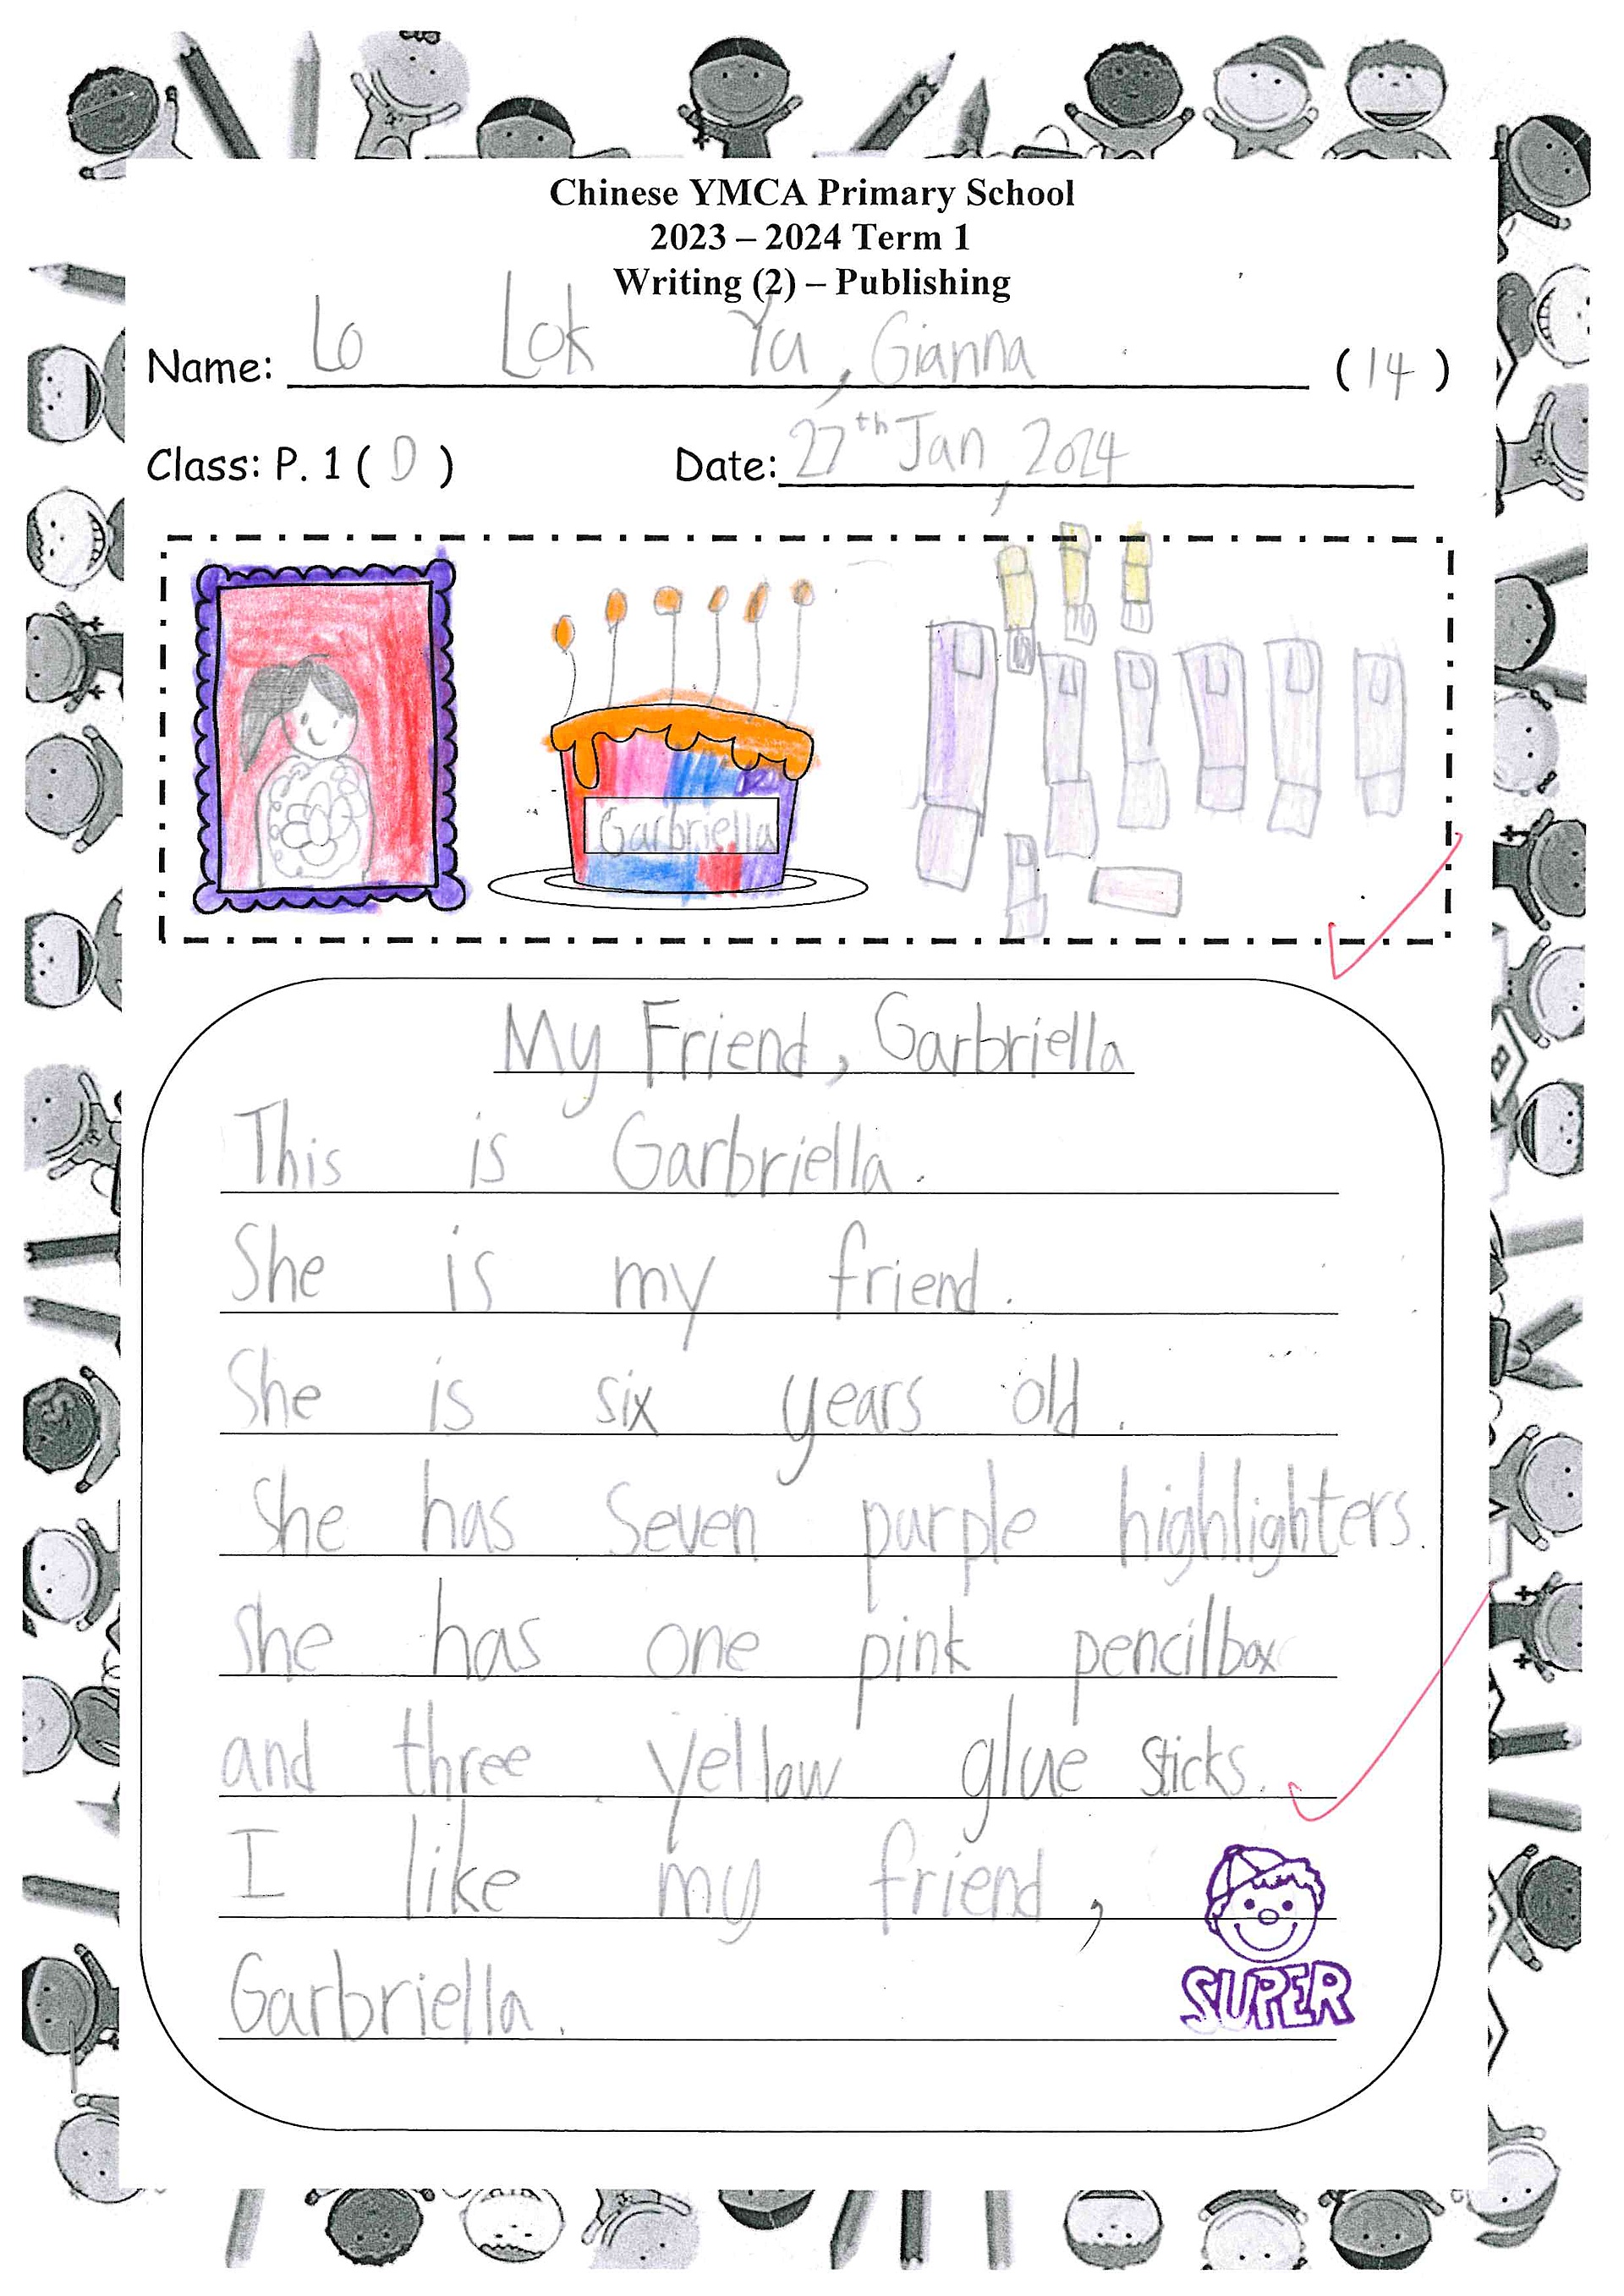 Chinese YMCA Primary School
2023 – 2024 Term 1
Writing (2) – Publishing
Name: Lo Lok Yu, Gianna (14)
Class: P. 1 ( D ) Date: 27th Jan, 2024
Garbriella
My Friend, Garbriella
This is Garbriella.
She is my friend.
She is six years old.
She has Seven purple highlighters.
She has one pink pencilbox
and three yellow glue sticks.
I like my friend,
Garbriella.
SUPER